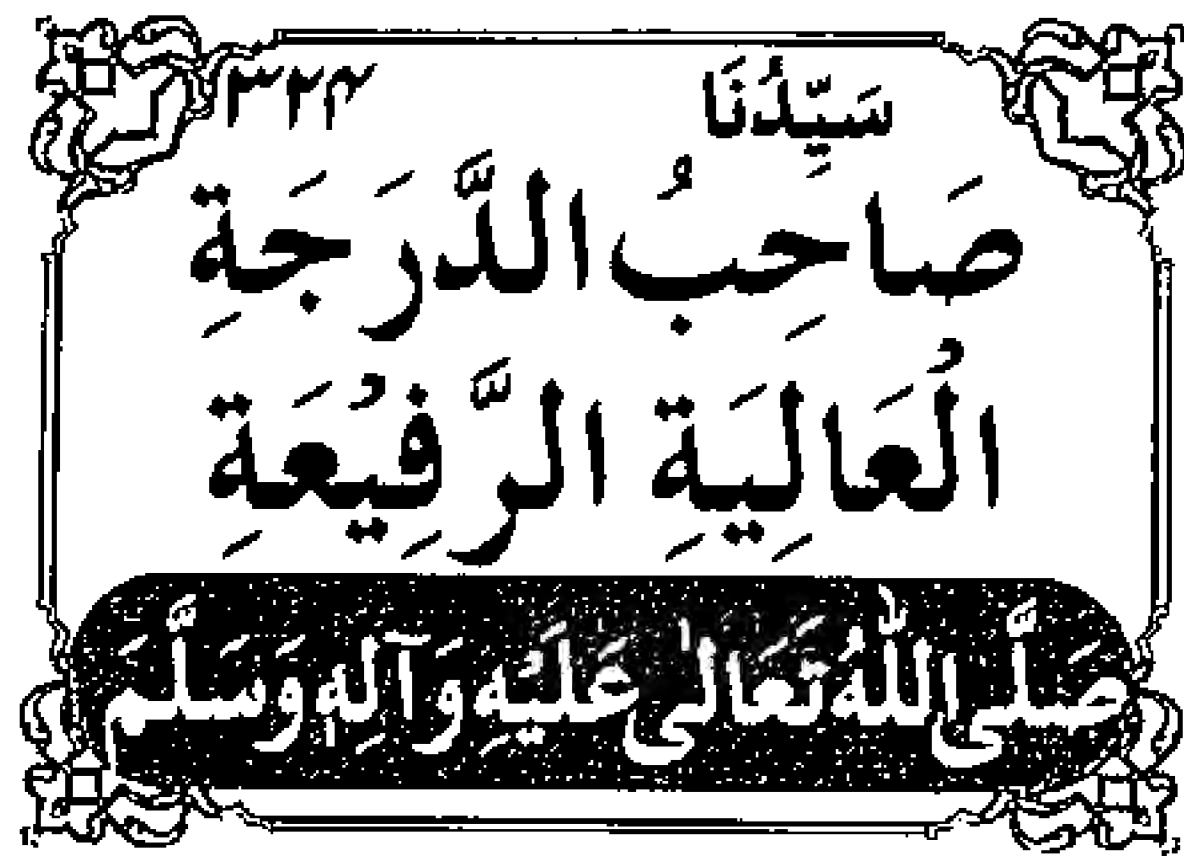 سَيِّدُنَا ۳۲۴
صَاحِبُ الدَّرَجَةِ
الْعَالِيَةِ الرَّفِيْعَةِ
صَلَّى اللّٰهُ تَعَالٰى عَلَيْهِ وَآلِهٖ وَسَلَّمَ